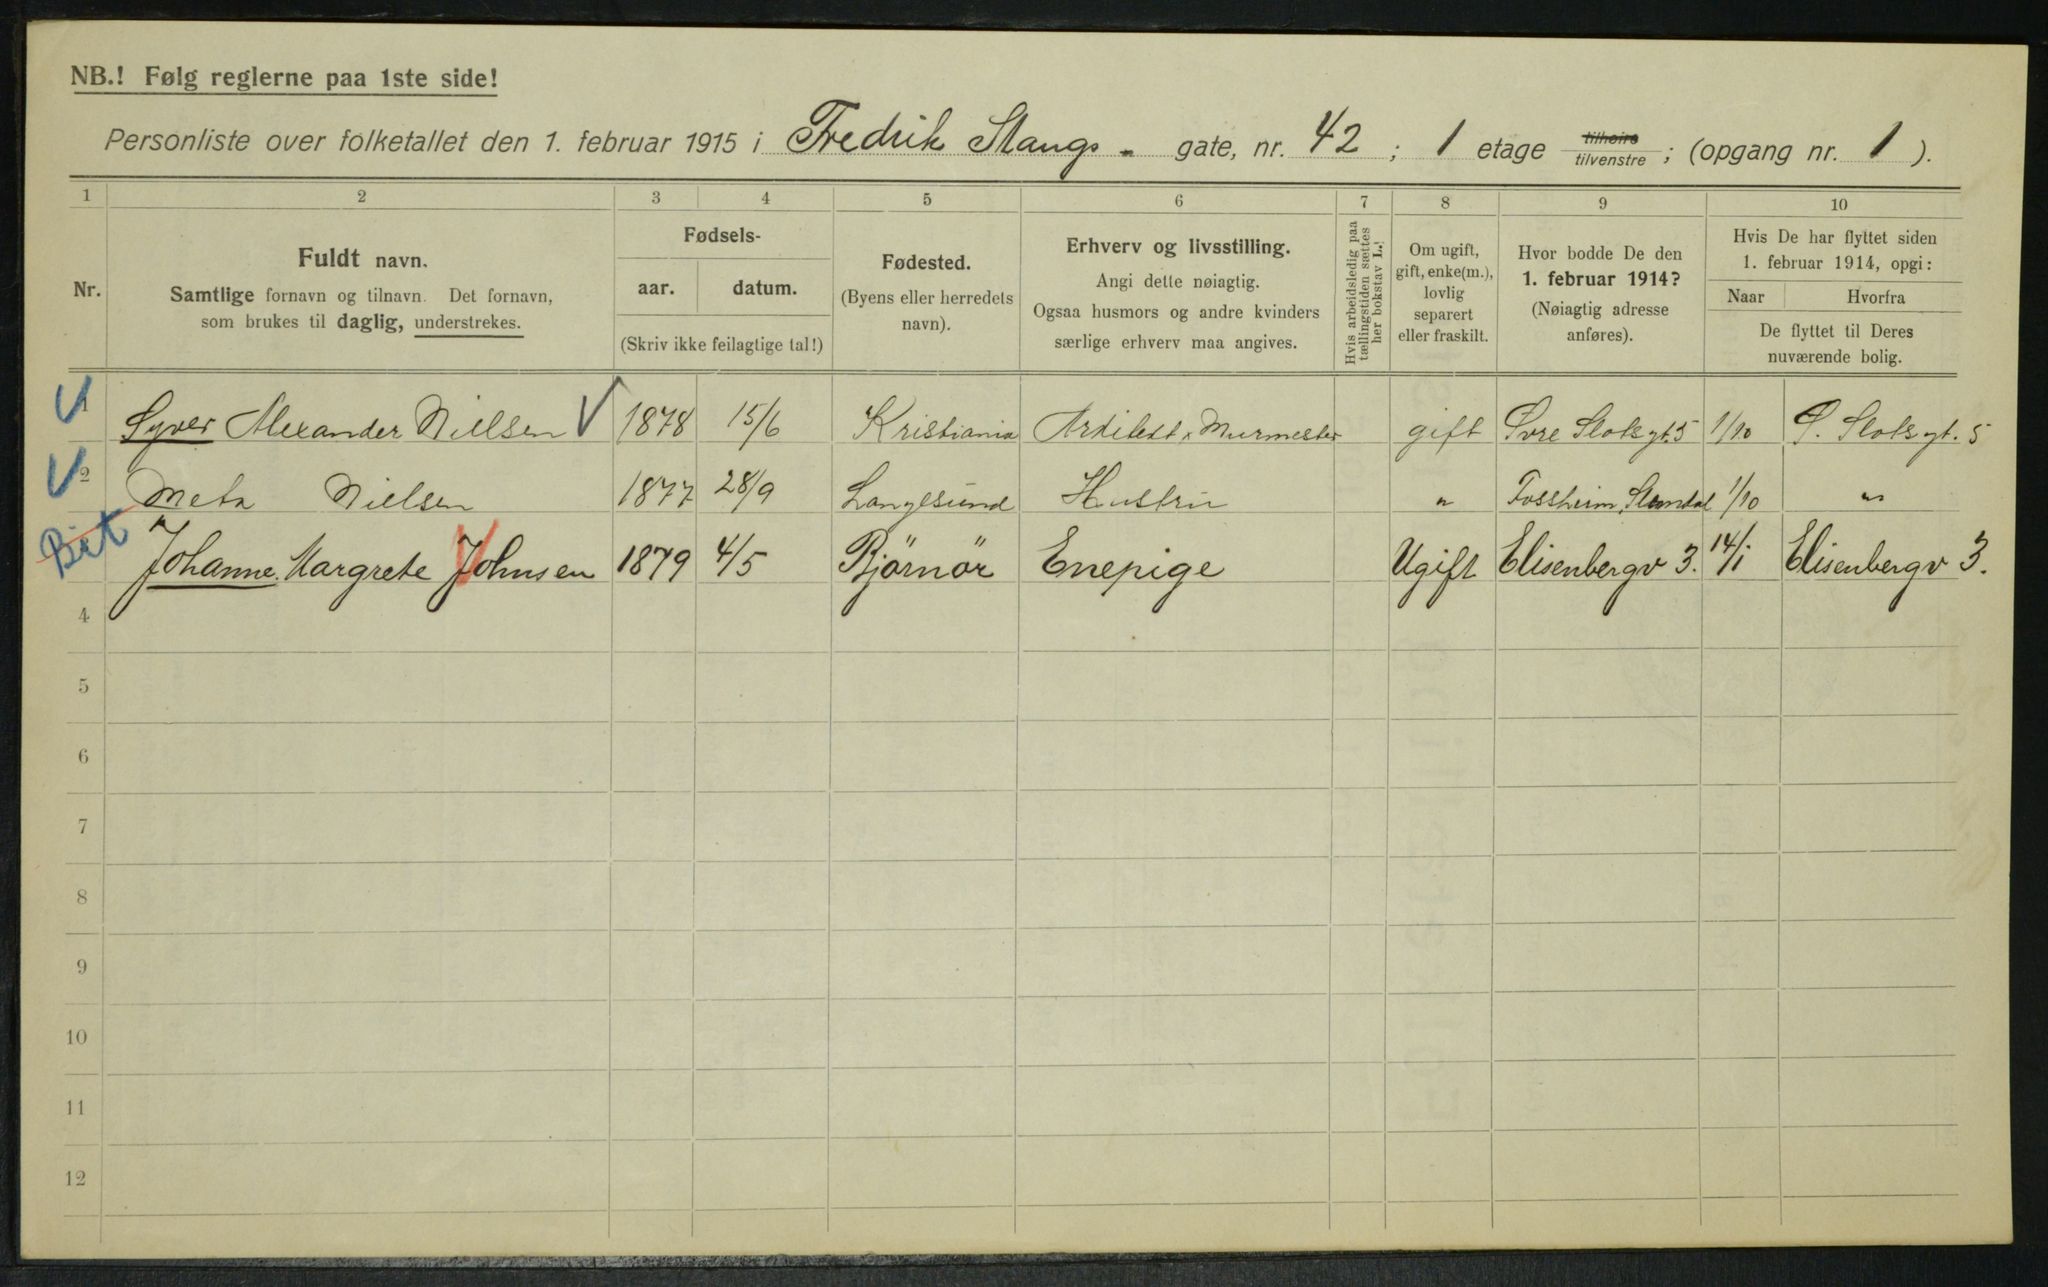 NB.! Følg reglerne paa 1ste side!
Personliste over folketallet den 1. februar 1915 i Fredrik Stangs - gate, nr. 42 ; 1 etage tilhøire tilvenstre ; (opgang nr. 1 ).
1 2 3 4 5 6 7 8 9 10
Nr.
Fuldt navn.
Samtlige fornavn og tilnavn. Det fornavn,
som brukes til daglig, understrekes.
Fødsels-
aar. datum.
(Skriv ikke feilagtige tal!)
Fødested.
(Byens eller herredets
navn).
Erhverv og livsstilling.
Angi dette nøiagtig.
Ogsaa husmors og andre kvinders
særlige erhverv maa angives.
Hvis arbeidsledig paa
tællingstiden sættes
her bokstav L.!
Om ugift,
gift, enke(m.),
lovlig
separert
eller fraskilt.
Hvor bodde De den
1. februar 1914?
(Nøiagtig adresse
anføres).
Hvis De har flyttet siden
1. februar 1914, opgi:
Naar Hvorfra
De flyttet til Deres
nuværende bolig.
1 Syver Alexander Nielsen 1878 15/6 Kristiania Arkitekt, Murmester gift Øvre Slotsgt. 5 1/10 Ø. Slotsgt. 5
2 Meta Nielsen 1877 28/9 Langesund Hustru " Fossheim, 1/10 "
Bit Johanne Margrete Johnsen 1879 4/5 Bjørnør Enepige Ugift Elisenbergv 3. 14/1 Elisenbergv 3.
4
5
6
7
8
9
10
11
12